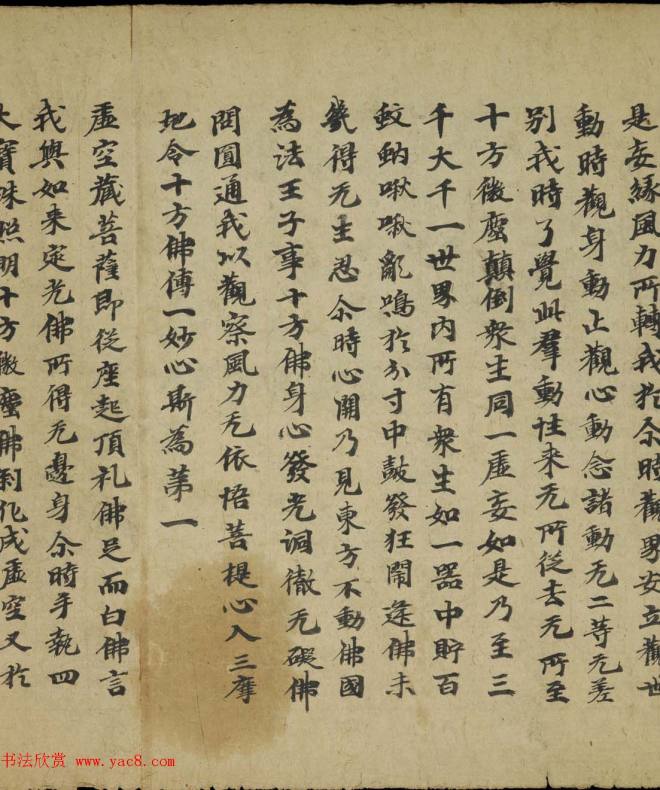 是妄緣風力所轉我於尒時觀界安立觀世
動時觀身動止觀心動念諸動无二等无差
別我時了覺此羣動性来无所從去无所至
十方微塵顛倒衆生同一虛妄如是乃至三
千大千一世界内所有衆生如一器中貯百
蚊蚋啾啾亂鳴於分寸中鼓發狂鬧逢佛未
幾得无生忍尒時心開乃見東方不動佛國
為法王子事十方佛身心發光洞徹无礙佛
問圓通我以觀察風力无依悟菩提心入三摩
地令十方佛傳一妙心斯為苐一
虛空藏菩薩即從座起頂礼佛足而白佛言
我與如来定光佛所得无邊身尒時手執四
大寶珠照明十方微塵佛刹化成虛空又於
书法欣赏 www.yac8.com